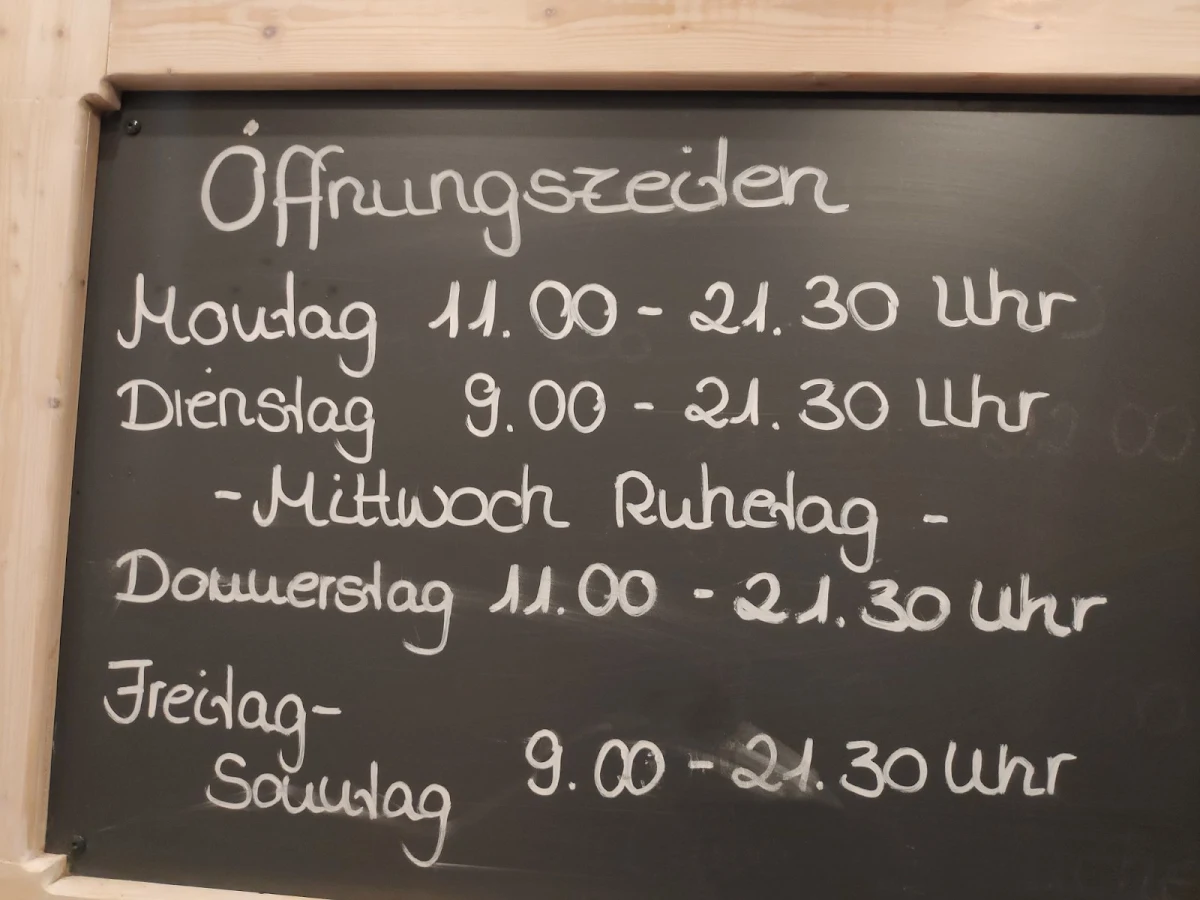 Öffnungszeiten
Montag 11.00 - 21.30 Uhr
Dienstag 9.00 - 21.30 Uhr
- Mittwoch Ruhetag -
Donnerstag 11.00 - 21.30 Uhr
Freitag-
Sonntag 9.00 - 21.30 Uhr